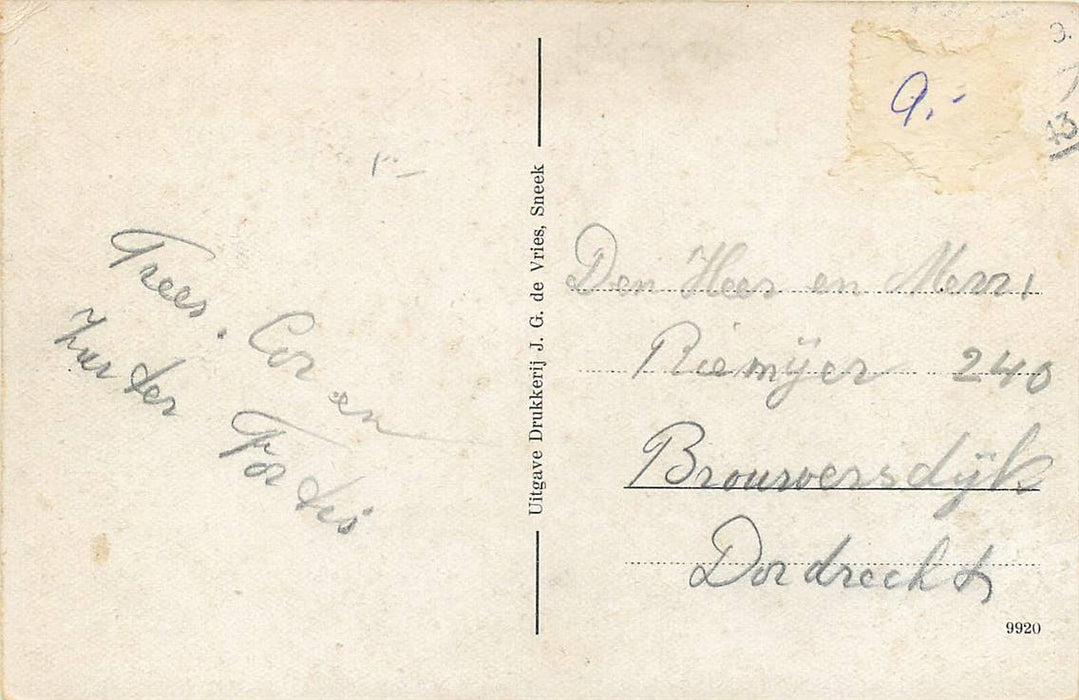 9.-
13
Trees. Cor en
Zuster Fortis
Uitgave Drukkerij J. G. de Vries, Sneek
Den Heer en Mevr.
Riemijer 240
Brouwersdijk
Dordrecht
9920